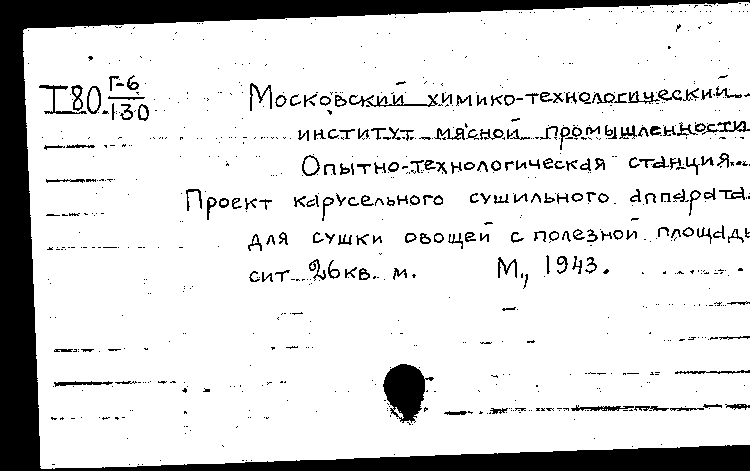 I80 Г-6/130
Московский химико-технологический
институт мясной промышленности
Опытно-технологическая станция...
Проект карусельного сушильного аппарата
для сушки овощей с полезной площадь
сит 26 кв. м. М., 1943.